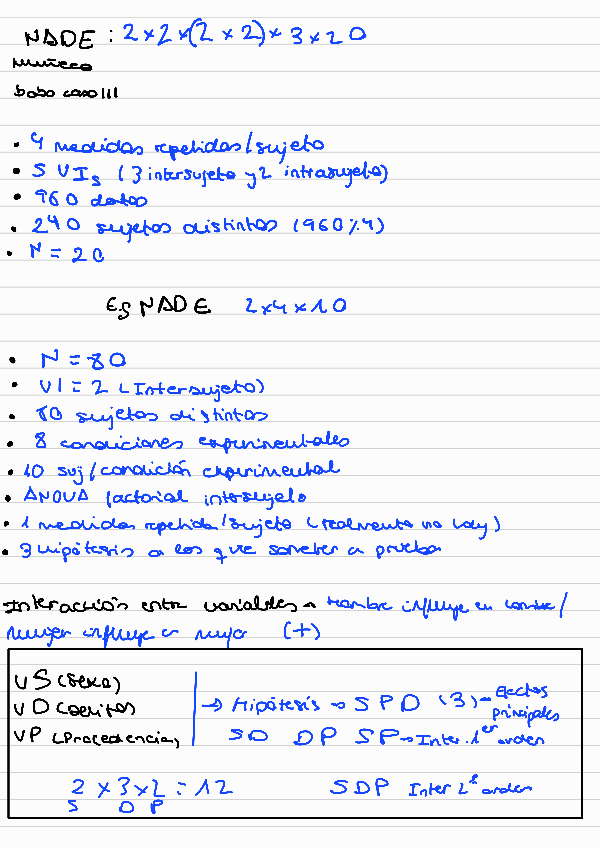 NADE : 2 x 2 x (2 x 2) x 3 x 20
muñeco
bobo caso !!!
• 4 medidas repetidas / sujeto
• 5 VIs (3 intersujeto y 2 intrasujeto)
• 960 datos
• 240 sujetos distintos (960 % 4)
• N = 20
Es NADE 2x4x10
• N = 80
• VI = 2 (Intersujeto)
• 80 sujetos distintos
• 8 condiciones experimentales
• 10 suj/condición experimental
• ANOVA factorial intersujeto
• 1 medidas repetida/sujeto (realmente no hay)
• 3 hipótesis a las que someter a prueba
Interacción entre variables → Hombre influye en hombre /
mujer influye en mujer (+)
VS (sexo)
VD (delitos)
VP (Procedencia)
→ Hipótesis → S P D (3) → Efectos principales
SD DP SP → Inter. 1er orden
2 x 3 x 2 = 12
S D P
SDP Inter 2º orden